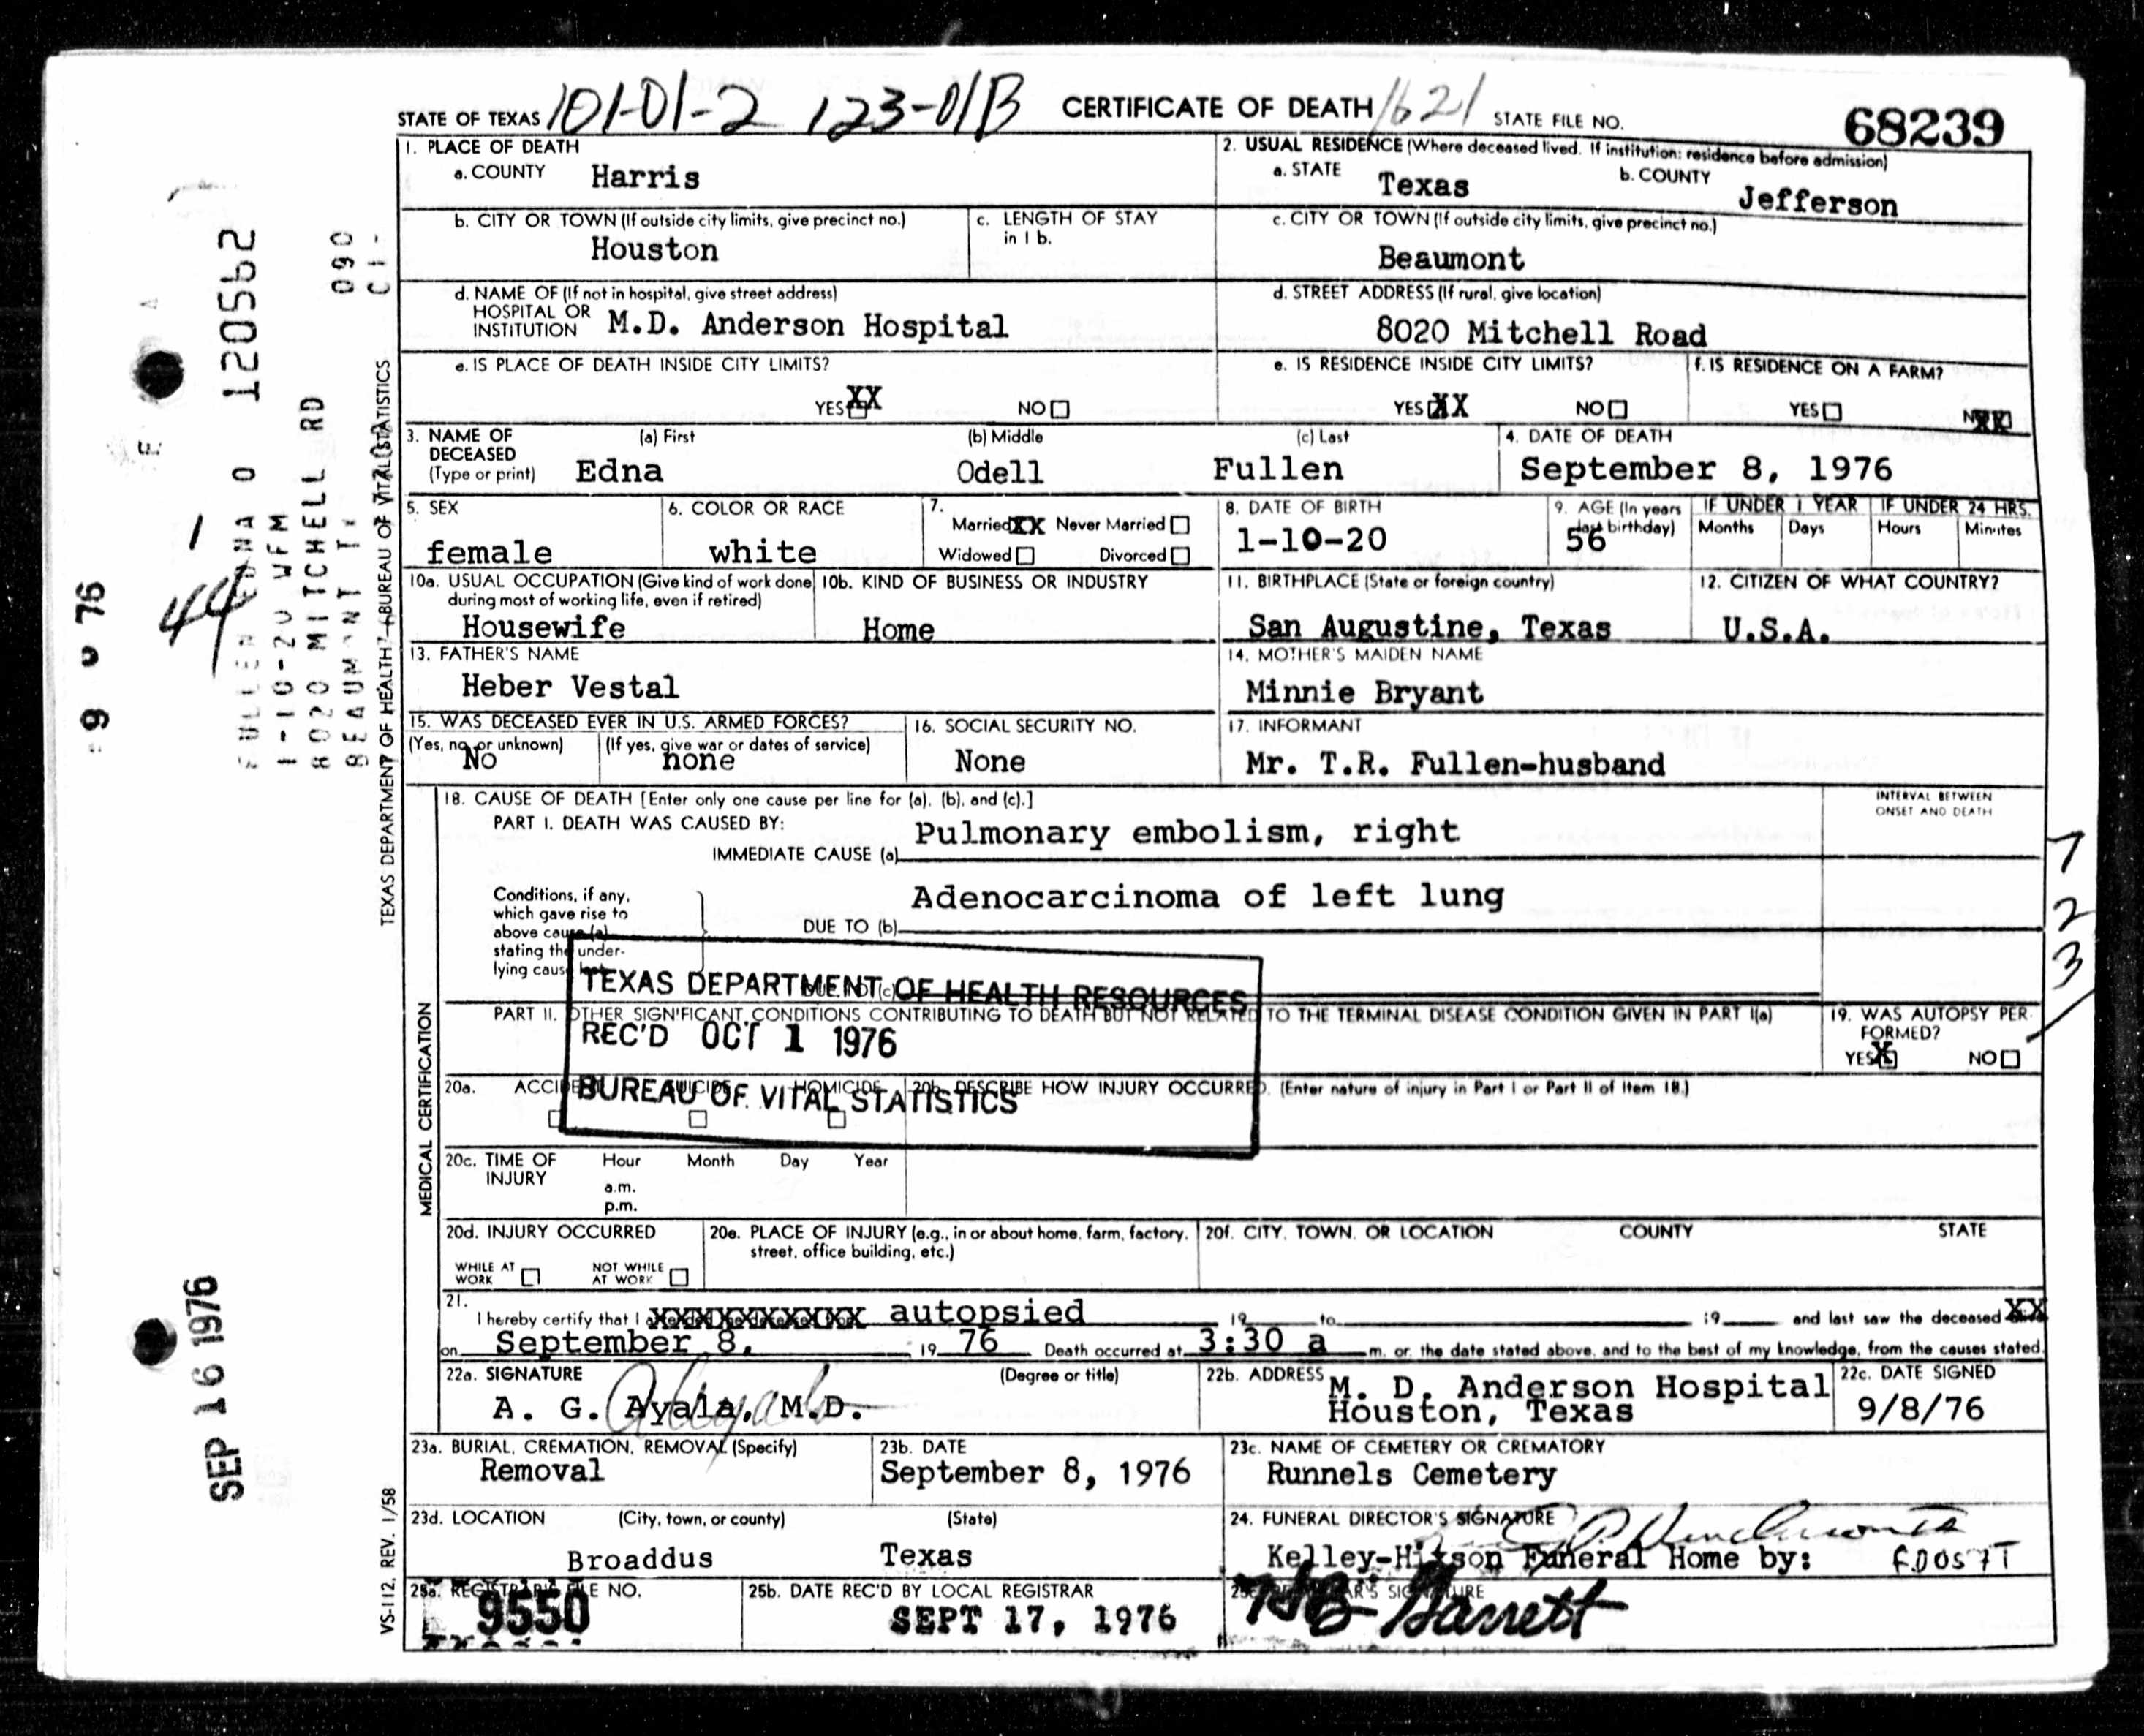 STATE OF TEXAS 101-01-2 123-01B CERTIFICATE OF DEATH 1621 STATE FILE NO. 68239
1. PLACE OF DEATH
a. COUNTY Harris
2. USUAL RESIDENCE (Where deceased lived. If institution: residence before admission)
a. STATE Texas b. COUNTY Jefferson
b. CITY OR TOWN (If outside city limits, give precinct no.) Houston
c. LENGTH OF STAY in 1 b.
c. CITY OR TOWN (If outside city limits, give precinct no.) Beaumont
d. NAME OF (If not in hospital, give street address)
HOSPITAL OR
INSTITUTION M.D. Anderson Hospital
d. STREET ADDRESS (If rural, give location)
8020 Mitchell Road
e. IS PLACE OF DEATH INSIDE CITY LIMITS?
YES XX NO
e. IS RESIDENCE INSIDE CITY LIMITS?
YES XX NO
f. IS RESIDENCE ON A FARM?
YES NO XX
3. NAME OF DECEASED (Type or print)
(a) First (b) Middle (c) Last
Edna Odell Fullen
4. DATE OF DEATH
September 8, 1976
5. SEX
female
6. COLOR OR RACE
white
7.
Married XX Never Married
Widowed Divorced
8. DATE OF BIRTH
1-10-20
9. AGE (In years last birthday)
56
IF UNDER 1 YEAR IF UNDER 24 HRS.
Months Days Hours Minutes
10a. USUAL OCCUPATION (Give kind of work done during most of working life, even if retired)
Housewife
10b. KIND OF BUSINESS OR INDUSTRY
Home
11. BIRTHPLACE (State or foreign country)
San Augustine, Texas
12. CITIZEN OF WHAT COUNTRY?
U.S.A.
13. FATHER'S NAME
Heber Vestal
14. MOTHER'S MAIDEN NAME
Minnie Bryant
15. WAS DECEASED EVER IN U.S. ARMED FORCES?
(Yes, no, or unknown) (If yes, give war or dates of service)
No none
16. SOCIAL SECURITY NO.
None
17. INFORMANT
Mr. T.R. Fullen-husband
18. CAUSE OF DEATH [Enter only one cause per line for (a), (b), and (c).]
INTERVAL BETWEEN ONSET AND DEATH
PART I. DEATH WAS CAUSED BY:
IMMEDIATE CAUSE (a) Pulmonary embolism, right
Conditions, if any, which gave rise to above cause (a) stating the underlying cause last.
DUE TO (b) Adenocarcinoma of left lung
DUE TO (c)
TEXAS DEPARTMENT OF HEALTH RESOURCES
REC'D OCT 1 1976
BUREAU OF VITAL STATISTICS
PART II. OTHER SIGNIFICANT CONDITIONS CONTRIBUTING TO DEATH BUT NOT RELATED TO THE TERMINAL DISEASE CONDITION GIVEN IN PART I(a)
19. WAS AUTOPSY PERFORMED?
YES X NO
20a. ACCIDENT SUICIDE HOMICIDE
20b. DESCRIBE HOW INJURY OCCURRED. (Enter nature of injury in Part I or Part II of Item 18.)
20c. TIME OF INJURY
Hour Month Day Year
a.m.
p.m.
20d. INJURY OCCURRED
WHILE AT WORK NOT WHILE AT WORK
20e. PLACE OF INJURY (e.g., in or about home, farm, factory, street, office building, etc.)
20f. CITY, TOWN, OR LOCATION COUNTY STATE
21.
I hereby certify that I XXXXXXXXXXX autopsied 19 to 19 and last saw the deceased XX
on September 8, 19 76 Death occurred at 3:30 a m. on the date stated above, and to the best of my knowledge, from the causes stated.
22a. SIGNATURE (Degree or title)
A. G. Ayala, M.D.
22b. ADDRESS M. D. Anderson Hospital
Houston, Texas
22c. DATE SIGNED
9/8/76
23a. BURIAL, CREMATION, REMOVAL (Specify)
Removal
23b. DATE
September 8, 1976
23c. NAME OF CEMETERY OR CREMATORY
Runnels Cemetery
23d. LOCATION (City, town, or county) (State)
Broaddus Texas
24. FUNERAL DIRECTOR'S SIGNATURE
Kelley-Hixson Funeral Home by:
25a. REGISTRAR'S FILE NO.
9550
25b. DATE REC'D BY LOCAL REGISTRAR
SEPT 17, 1976
25c. REGISTRAR'S SIGNATURE
Garrett
TEXAS DEPARTMENT OF HEALTH - BUREAU OF VITAL STATISTICS
MEDICAL CERTIFICATION
VS-112, REV. 1/58
120562
090
FULLEN EDNA O
1-10-20 WFM
8020 MITCHELL RD
BEAUMONT TX
44
9 76
SEP 16 1976
7
2
3